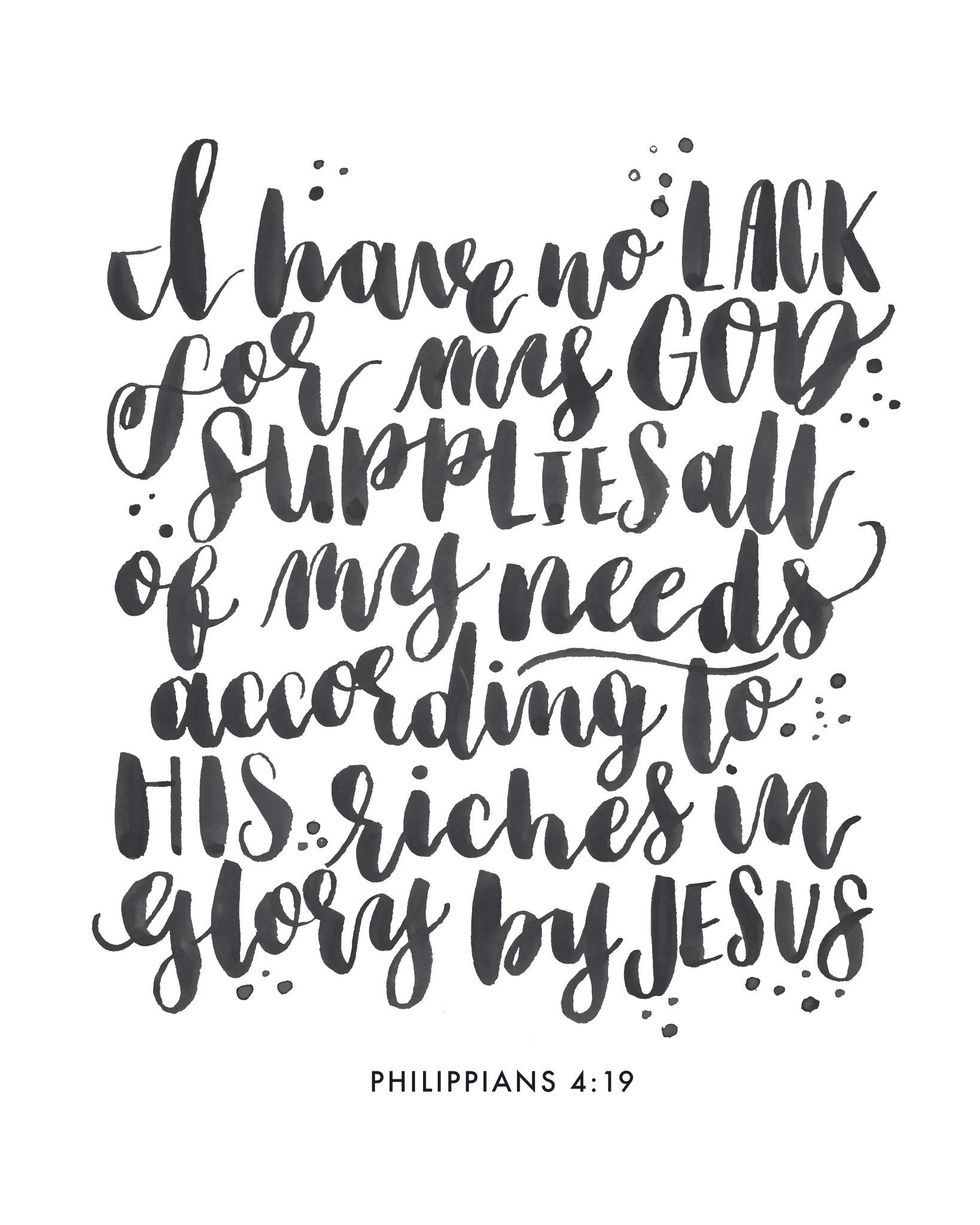 I have no LACK
for my GOD
SUPPLIES all
of my needs
according to
HIS riches in
glory by JESUS
PHILIPPIANS 4:19